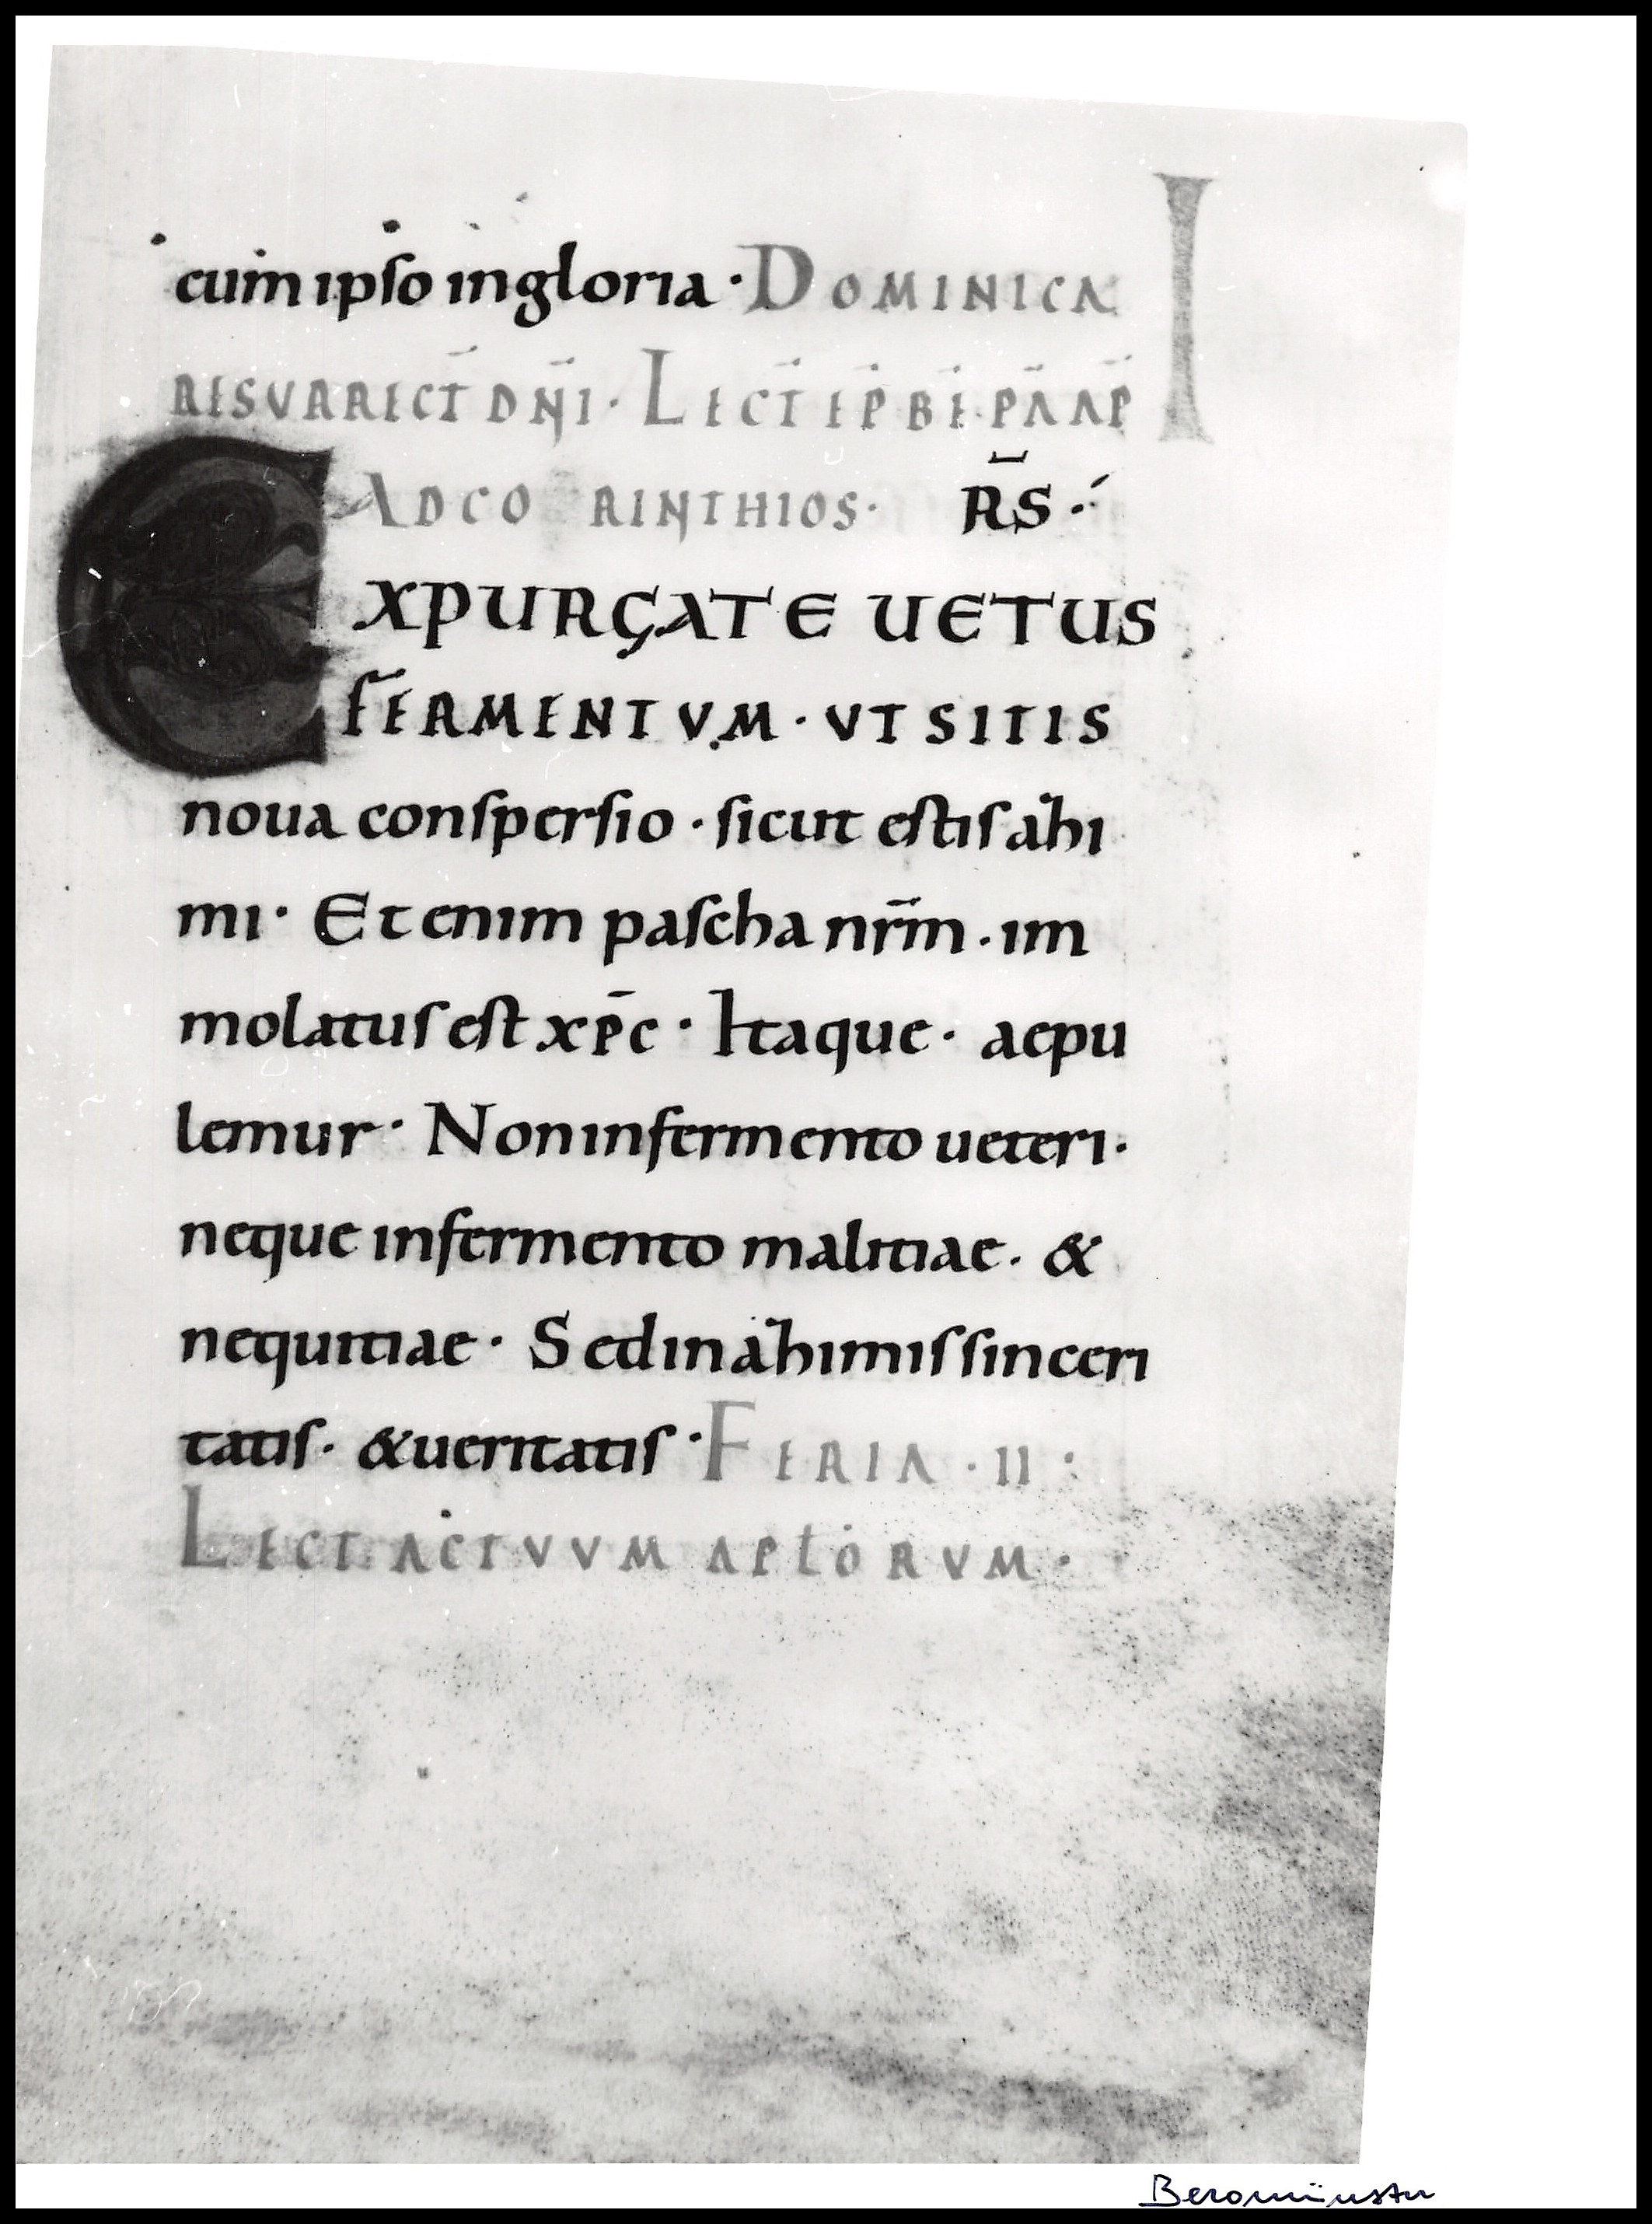 cum ipso in gloria · DOMINICA I
RESURRECT̄ DN̄I · LECT̄ EP̄ BĒ PĀ AP̄
AD CORINTHIOS · R̄S ·
EXPURGATE UETUS
FERMENTVM · VT SITIS
noua conspersio · sicut estis ahi
mi · Et enim pascha nr̄m · im
molatus est xp̄c · Itaque · aepu
lemur · Non in fermento ueteri ·
neque in fermento malitiae · &
nequitiae · Sed in ahimis sinceri
tatis · & ueritatis · FERIA · II :
LECT ACTVVM APLORVM ·
Beromünster